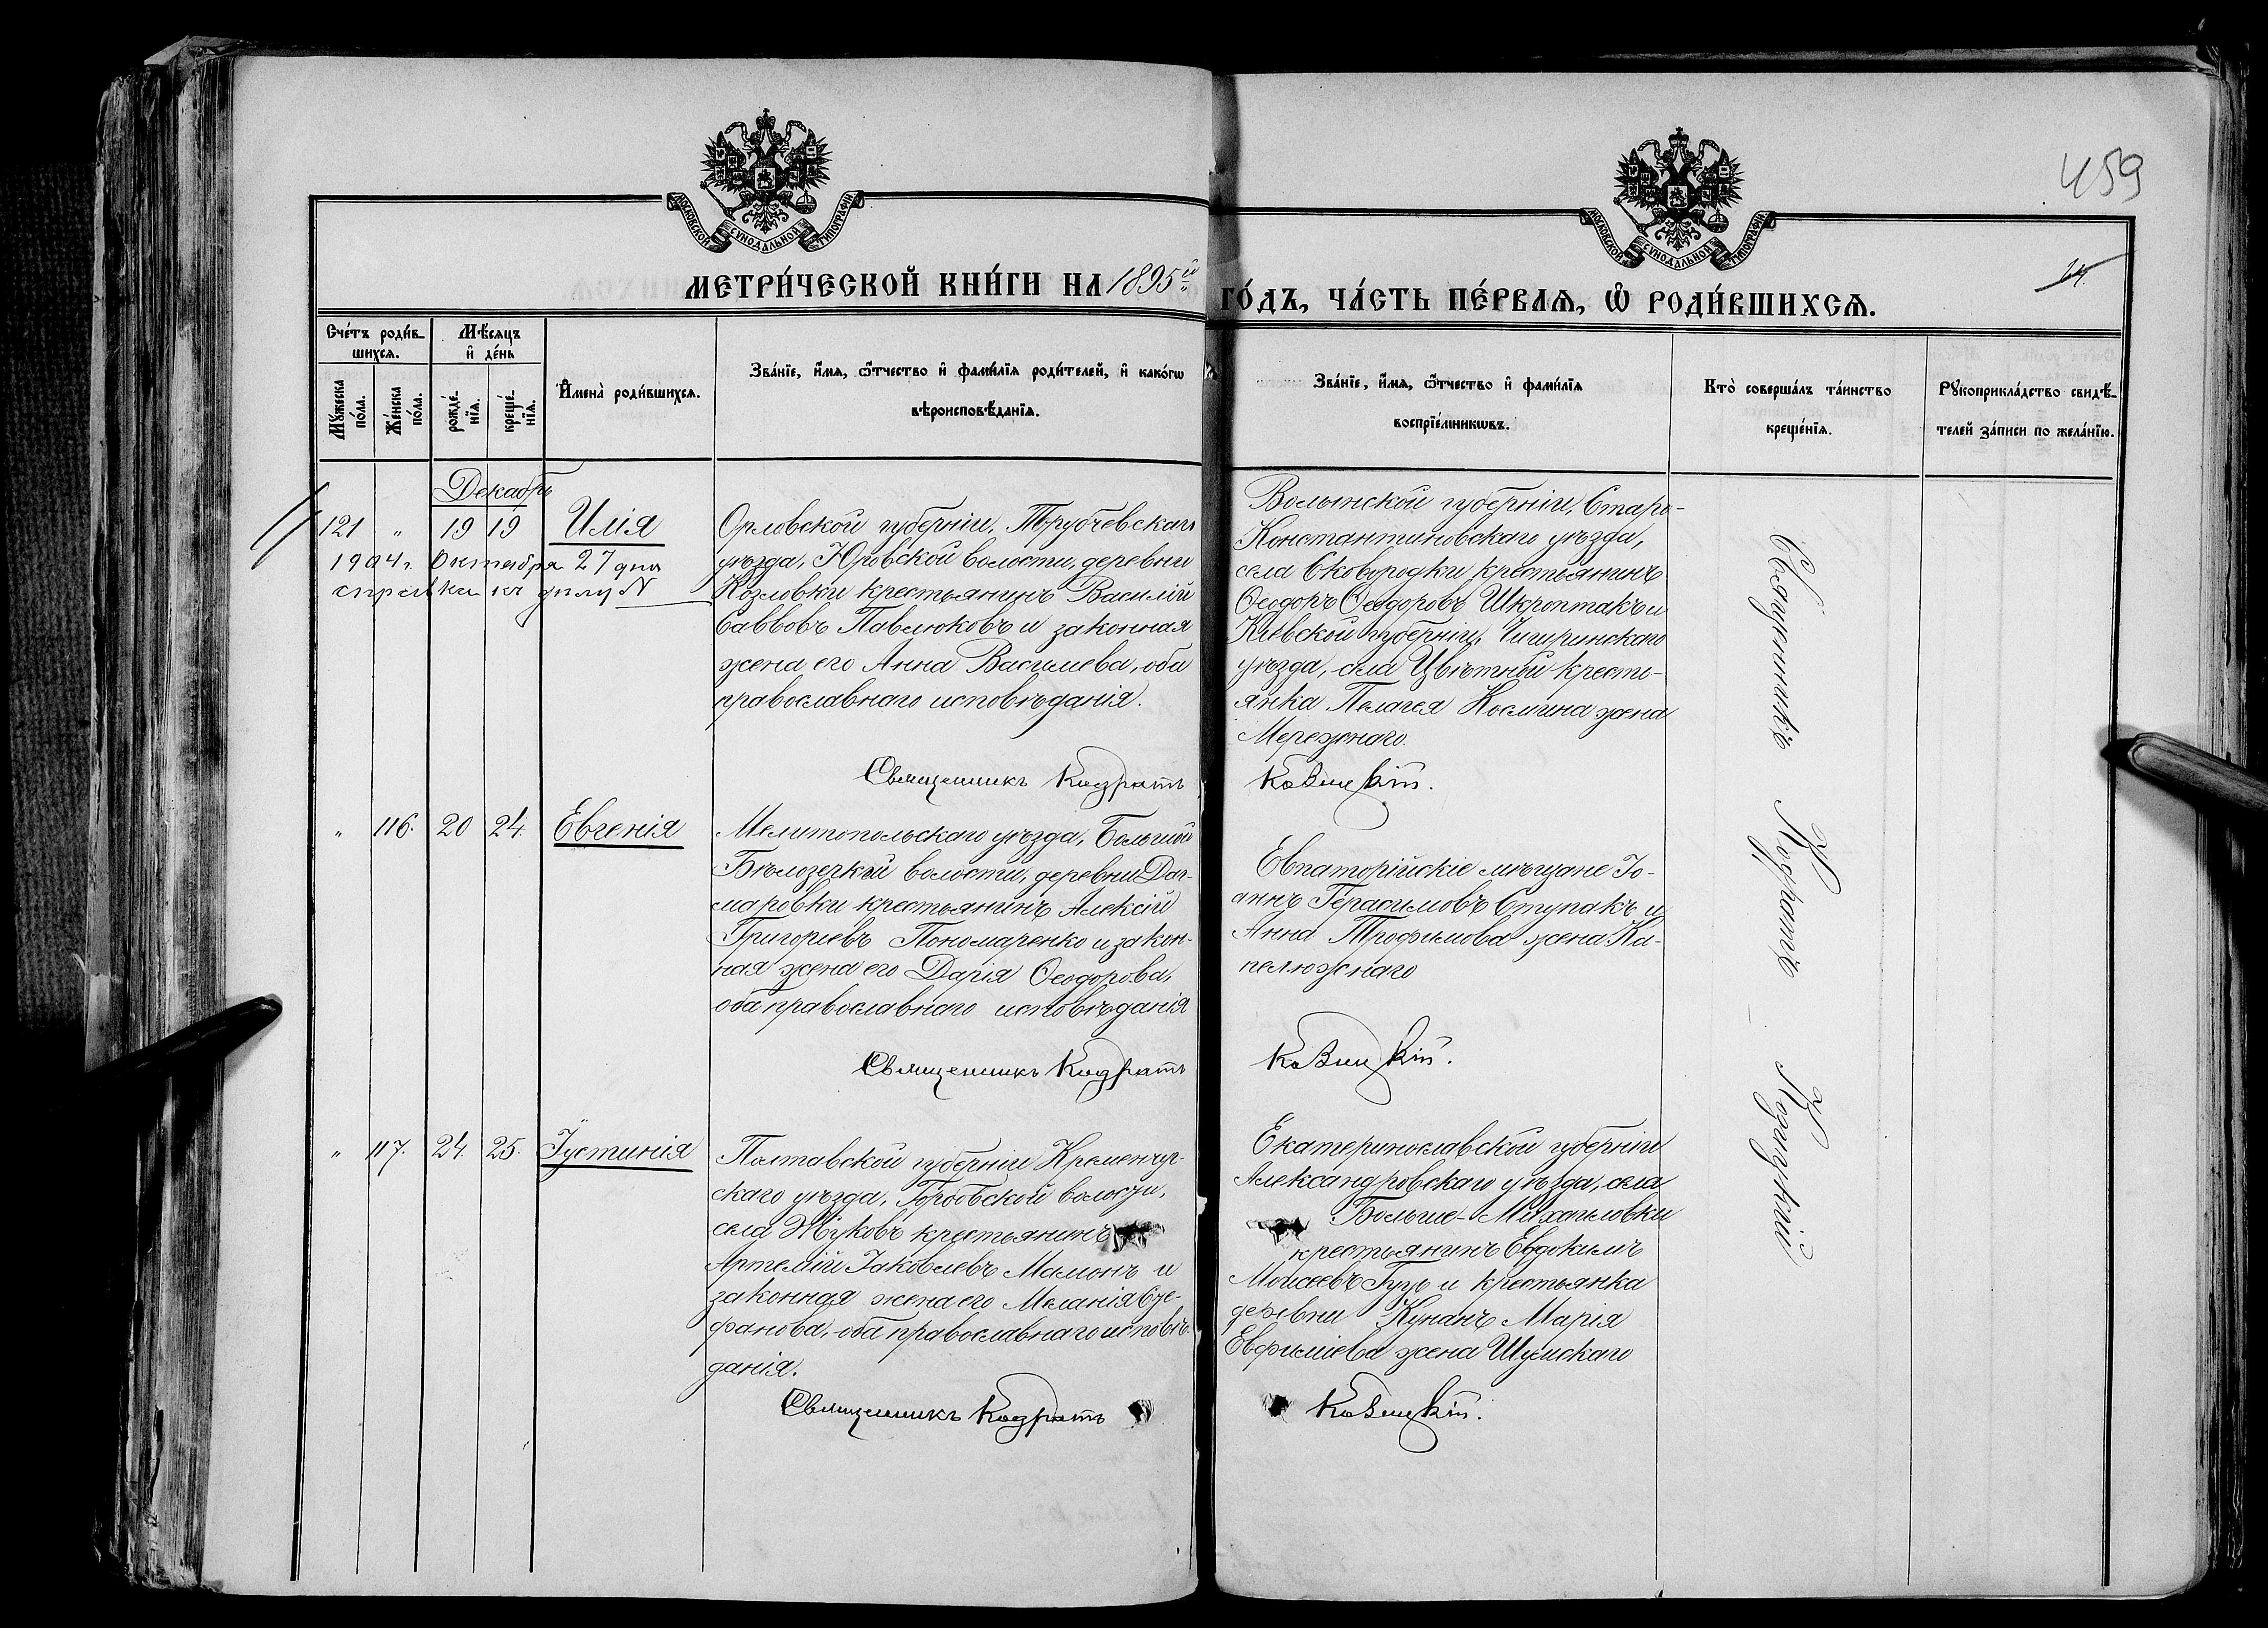 459
МОСКОВСКОЙ СѴНОДАЛЬНОЙ ТИПОГРАФІИ
МОСКОВСКОЙ СѴНОДАЛЬНОЙ ТИПОГРАФІИ
МЕТРИ́ЧЕСКОЙ КНИ́ГИ НА 1895й ГО́ДЪ, ЧА́СТЬ ПЕ́РВАѦ, Ѡ РОДИ́ВШИХСѦ.
Сче́тъ роди́в-
шихсѧ.
Мꙋжеска
по́ла.
Же́нска
по́ла.
Мѣ́сѧцъ
и҆ де́нь
рожде́-
нїѧ.
креще́-
нїѧ.
И҆мена̀ роди́вшихсѧ.
Зва́нїе, и҆́мѧ, ѻ҆́тчество и҆ фами́лїѧ роди́телей, и҆ како́гѡ
вѣроисповѣ́данїѧ.
Зва́нїе, и҆́мѧ, ѻ҆́тчество и҆ фами́лїѧ
воспрїе́мникѡвъ.
Кто̀ соверша́лъ та́инство
креще́нїѧ.
Рꙋкоприкла́дство свидѣ́-
телей за́писи по жела́нїю.
Декабрь
121 " 19 19 Илія
1904 г. Октября 27 дня
справки къ делу N
Орловской губерніи, Трубчевскаго
уѣзда, Юровской волости, деревни
Козловки крестьянинъ Василій
Саввовъ Павлюковъ и законная
жена его Анна Васильева, оба
православнаго исповѣданія.
Священникъ Кодратъ
Волынской губерніи, Старо-
Константиновскаго уѣзда,
села Сковородки крестьянинъ
Ѳеодоръ Ѳеодоровъ Шкроптакъ и
Кіевской губерніи, Чигиринскаго
уѣзда, села Цвѣтной кресть-
янка Пелагея Космина жена
Мережнаго.
Козицкій.
" 116. 20 24. Евгенія
Мелитопольскаго уѣзда, Большой
Бѣлозерской волости, деревни Даг-
маровки крестьянинъ Алексій
Григорьевъ Пономаренко и закон-
ная жена его Дарія Ѳеодорова,
оба православнаго исповѣданія
Священникъ Кодратъ
Евпаторійскіе мѣщане Іо-
аннъ Герасимовъ Ступакъ и
Анна Трофимова жена Ка-
пелюжнаго
Козицкій.
" 117. 24. 25. Іустинія
Полтавской губерніи Кременчуг-
скаго уѣзда, волости,
села Жуковъ крестьянинъ
Артемій Іаковлевъ Мамонъ и
законная жена его Меланія Сте-
фанова, оба православнаго исповѣ-
данія.
Священникъ Кодратъ
Екатеринославской губерніи
Александровскаго уѣзда, села
Больше-Михайловки
крестьянинъ Евдокимъ
Моисеевъ Гузь и крестьянка
деревни Кунанъ Марія
Евфиміева жена Шумскаго
Козицкій.
Священникъ Кодратъ Козицкій